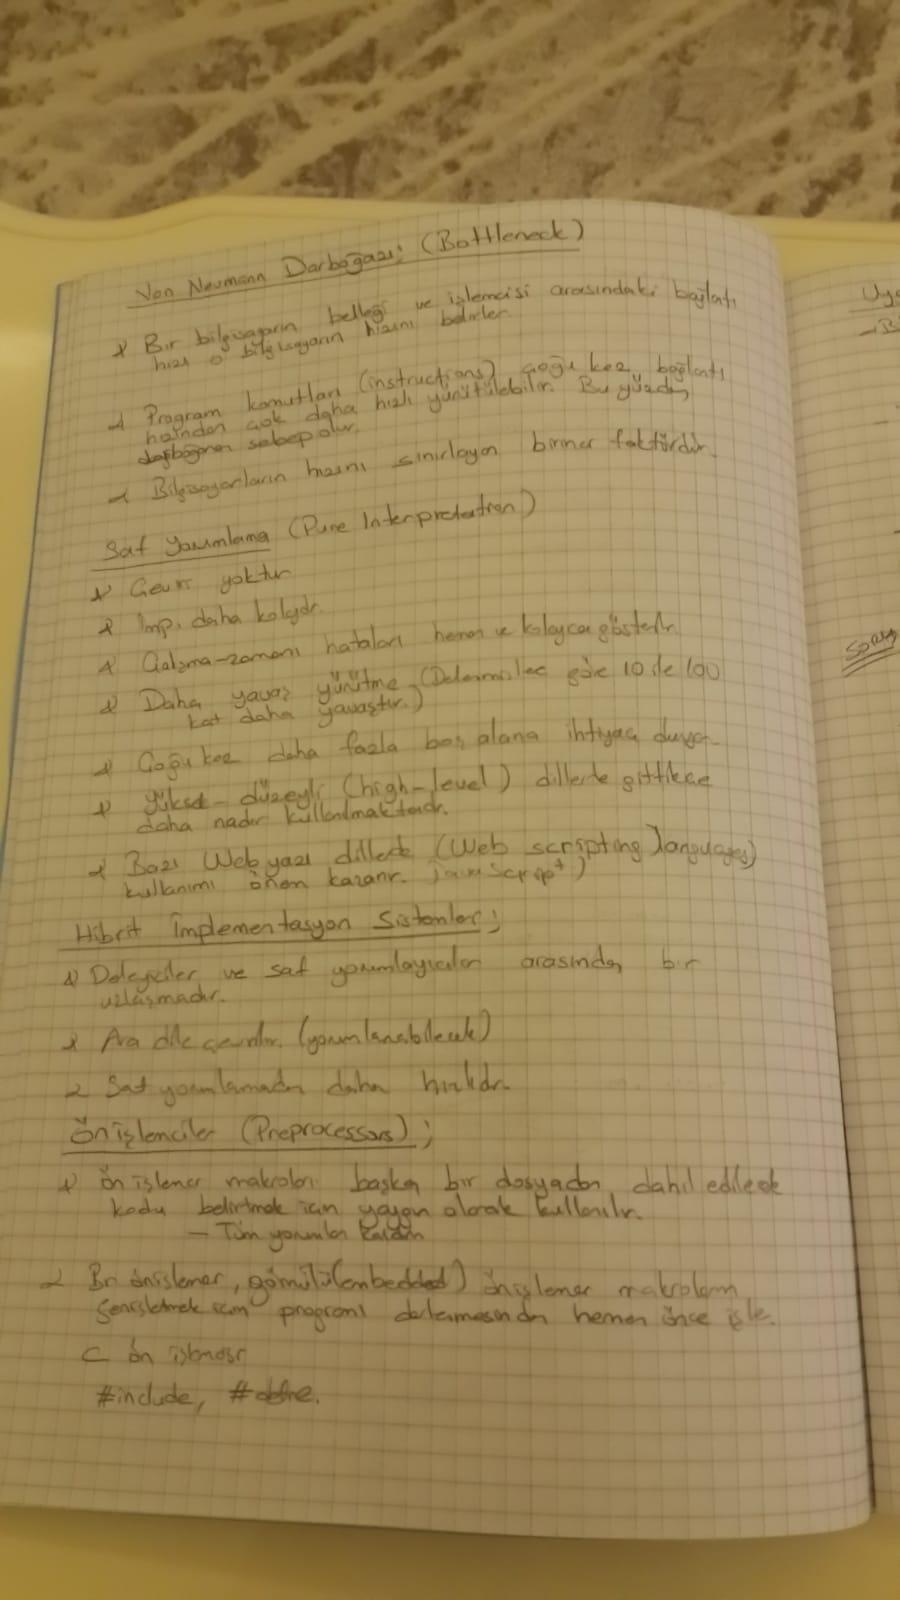 Von Neumann Darboğazı: (Bottleneck)
Bir bilgisayarın belleği ve işlemcisi arasındaki bağlatı
hızı o bilgisayarın hızını belirler
Program komutları (instructions) çoğu kez bağlantı
hızından çok daha hızlı yürütülebilir. Bu yüzden
darboğaza sebep olur.
Bilgisayarların hızını sınırlayan birincil faktördür.
Saf Yorumlama (Pure Interpretation)
Çeviri yoktur
Imp. daha kolaydır.
Çalışma-zamanı hataları hemen ve kolayca gösterilir
Daha yavaş yürütme (Delenmişlere göre 10 ile 100
kat daha yavaştır.)
Çoğu kez daha fazla boş alana ihtiyaç duyar
Yüksek-düzeyli (high-level) dillerde gittikçe
daha nadir kullanılmaktadır.
Bazı Web yazı dillerde (Web scripting languages)
kullanımı önem kazanır. JavaScript)
Hibrit İmplementasyon Sistemler;
Deleyiciler ve saf yorumlayıcılar arasında bir
uzlaşmadır.
Ara dile çevirilir. (yorumlanabilecek)
Saf yorumlamadan daha hızlıdır.
Önişlenciler (Preprocessors);
Ön işlemci makroları başka bir dosyadan dahil edilecek
kodu belirtmek için yaygın olarak kullanılır.
— Tüm yorumları kaldırır
Bir önişlemci, gömülü(embedded) önişlemci makroların
genişletmek için programı derlemesinden hemen önce işle.
C ön işlemcisi
#include, #define.
Uyg
Soru